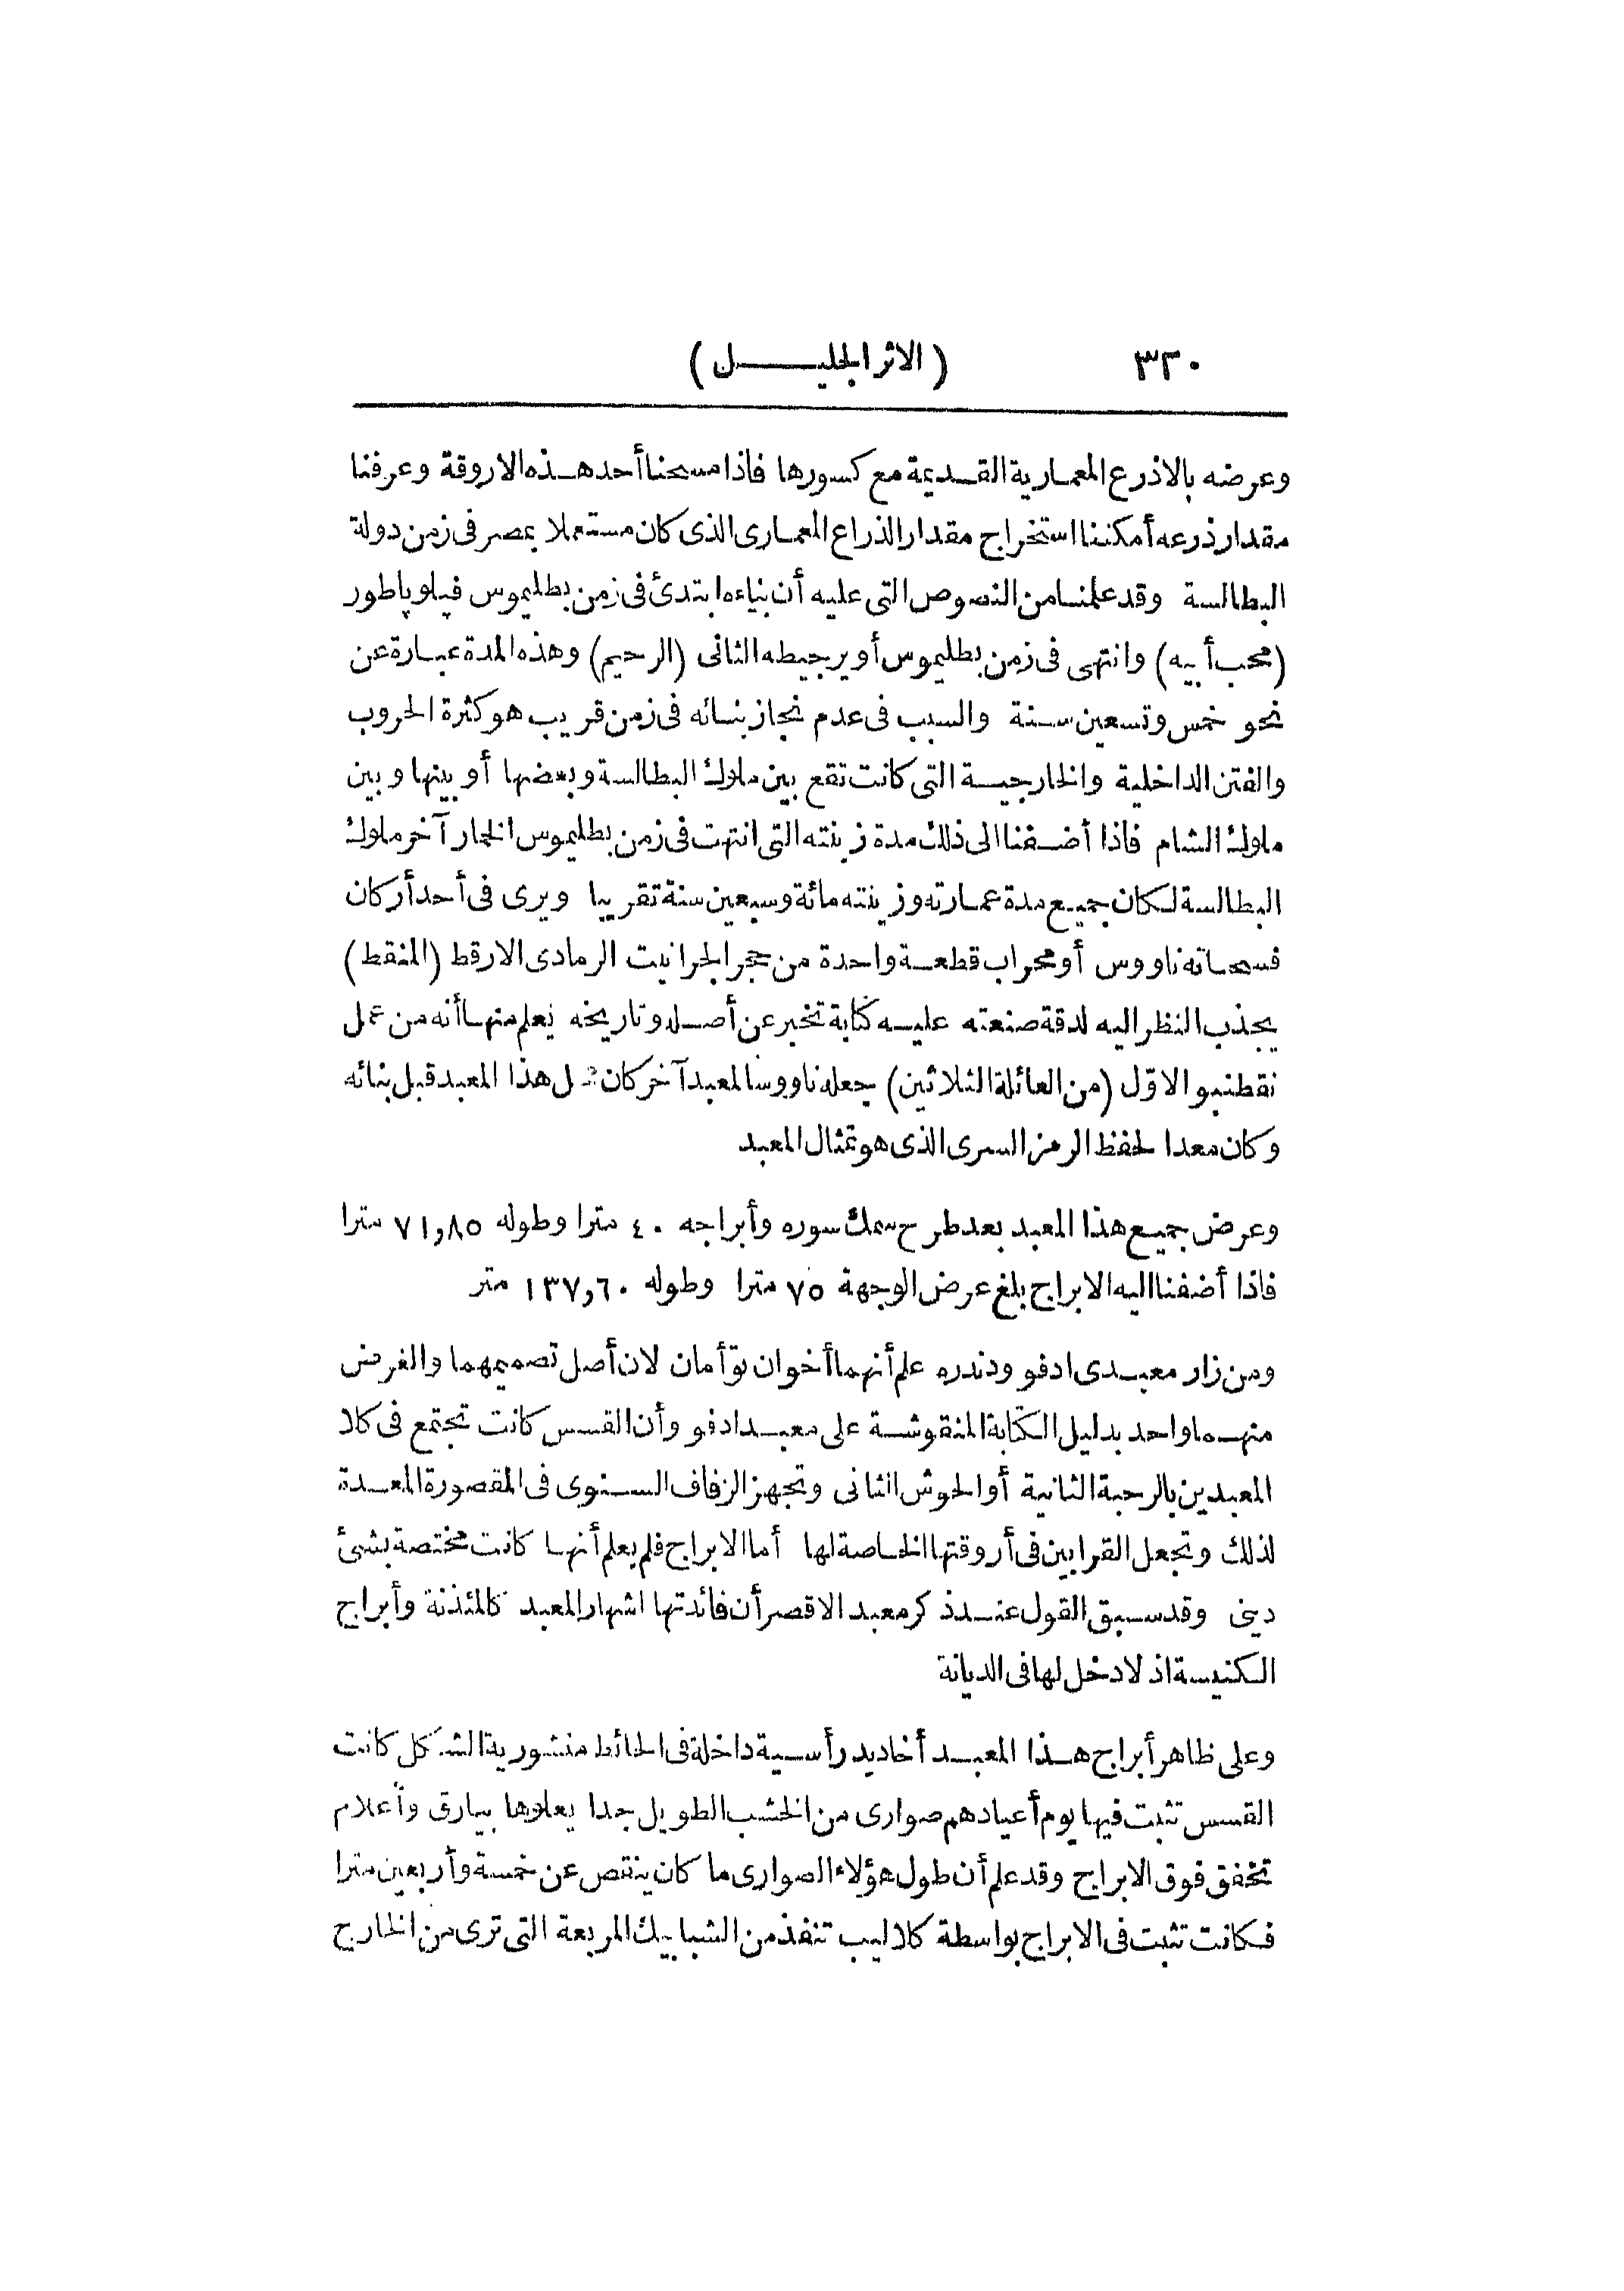 ٣٢٠ (الاثر الجليل)
وعرضه بالاذرع المعمارية القديمة مع كسورها فاذا مسحنا أحد هذه الاروقة وعرفنا
مقدار ذرعه أمكننا استخراج مقدار الذراع المعمارى الذى كان مستعملا بمصر فى زمن دولة
البطالسة وقد علمنا من النصوص التى عليه أن بناءه ابتدئ فى زمن بطليموس فيلوپاطور
(محب أبيه) وانتهى فى زمن بطليموس أويرجيطه الثانى (الرحيم) وهذه المدة عبارة عن
نحو خمس وتسعين سنة والسبب فى عدم نجاز بنائه فى زمن قريب هو كثرة الحروب
والفتن الداخلية والخارجية التى كانت تقع بين ملوك البطالسة وبعضها أو بينها وبين
ملوك الشام فاذا أضفنا الى ذلك مدة زينته التى انتهت فى زمن بطليموس الخمار آخر ملوك
البطالسة لكان جميع مدة عمارته وزينته مائة وسبعين سنة تقريبا ويرى فى أحد أركان
فسحاته ناووس أو محراب قطعة واحدة من حجر الجرانيت الرمادى الارقط (المنقط)
يجذب النظر اليه لدقة صنعته عليه كتابة تخبر عن أصله وتاريخه يعلم منها أنه من عمل
نقطنبو الاوّل (من العائلة الثلاثين) جعله ناووسا لمعبد آخر كان هذا المعبد قبل بنائه
وكان معدا لحفظ الرمز السرى الذى هو تمثال المعبد
وعرض جميع هذا المعبد بعد طرح سمك سوره وأبراجه ٤٠ مترا وطوله ٧١,٨٥ مترا
فاذا أضفنا اليه الابراج بلغ عرض الوجهة ٧٥ مترا وطوله ١٣٧,٦٠ متر
ومن زار معبدى ادفو ودندره علم أنهما أخوان توّأمان لان أصل تصميمهما والغرض
منهما واحد بدليل الكتابة المنقوشة على معبد ادفو وأن القسس كانت تجتمع فى كلا
المعبدين بالرحبة الثانية أو الحوش الثانى وتجهز الزفاف السنوى فى المقصورة المعدة
لذلك وتجعل القرابين فى أروقتها الخاصة لها أما الابراج فلم يعلم أنها كانت مختصة بشئ
دينى وقد سبق القول عند ذكر معبد الاقصر أن فائدتها اشهار المعبد كالمئذنة وأبراج
الكنيسة اذ لا دخل لها فى الديانة
وعلى ظاهر أبراج هذا المعبد أخاديد رأسية داخلة فى الحائط منشورية الشكل كانت
القسس تثبت فيها يوم أعيادهم صوارى من الخشب الطويل جدا يعلوها بيارق وأعلام
تخفق فوق الابراج وقد علم أن طول هؤلاء الصوارى ما كان ينقص عن خمسة وأربعين مترا
فكانت تثبت فى الابراج بواسطة كلاليب تنفذ من الشبابيك المربعة التى ترى من الخارج